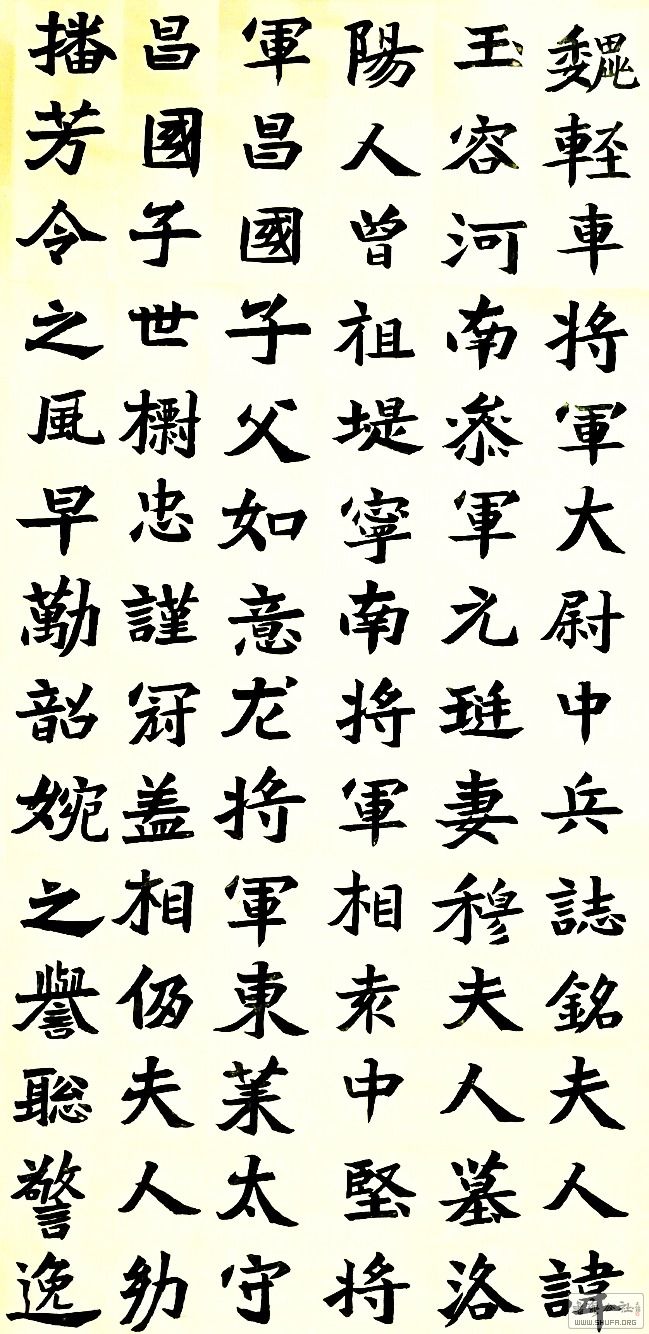 魏輕車将軍大尉中兵誌銘夫人諱
玉容河南叅軍元珽妻穆夫人墓洛
陽人曾祖堤寧南将軍相袁中堅将
軍昌國子父如意龙将軍東莱太守
昌國子世樹忠謹冠盖相仍夫人幼
播芳令之風早勱韶婉之譽聡警逸
WWW.SHUFA.ORG